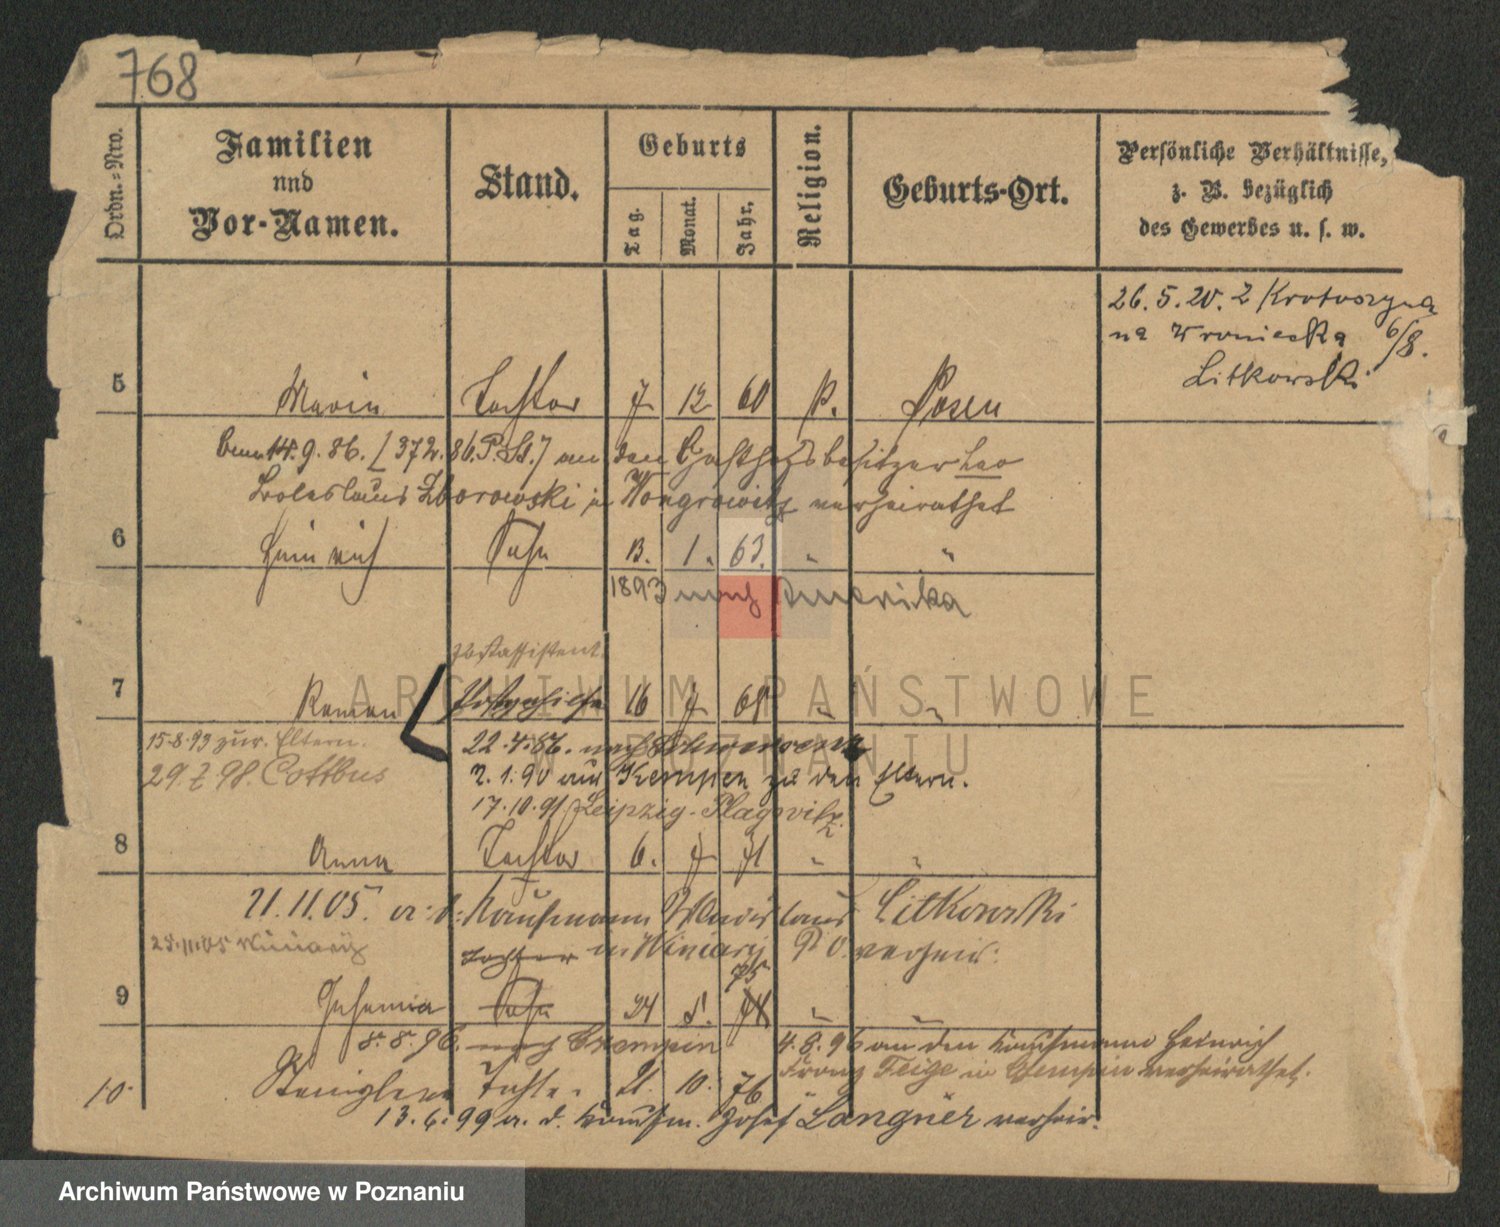 768
Ordn.-Nro.
Familien
und
Vor-Namen.
Stand.
Geburts
Tag.
Monat.
Jahr.
Religion.
Geburts-Ort.
Persönliche Verhältnisse,
z. B. bezüglich
des Gewerbes u. s. w.
26. 5. 20. z Krotoszyna
na Wroniecka 6/8.
Litkowski
5 Maria Tochter 7 12 60 k. Posen
14.9.86. [372.86. P. St.] an den Gasthofsbesitzer Leo
Boleslaus Zborowski in Wongrowitz verheirathet
6 Heinrich Sohn 13. 1. 63. " "
1893 nach Amerika
Postassistent
7 Roman Postgehilfe 16 7 68 " "
15.8.93 zur. Eltern.
22.4.86. nach
29.7.98 Cottbus
2.1.90 aus Kempen zu den Eltern.
17.10.91 Leipzig-Plagwitz
8 Anna Tochter 6. 7 71 " "
21.11.05. a. d. Kaufmann Wladislaus Litkowski
25.11.05 Winiary
Tochter in Winiary P. O. verheir.
75
9 Sohn 24 5. 74 " "
8.8.96. nach Czempin
4.8.96 an den Kaufmann Heinrich
Franz Feige in Czempin verheirathet.
10. Stanislawa Tochter 21. 10. 76 "
13.6.99 a. d. Kaufm. Josef Langner verheir.
ARCHIWUM PAŃSTWOWE
W POZNANIU
Archiwum Państwowe w Poznaniu